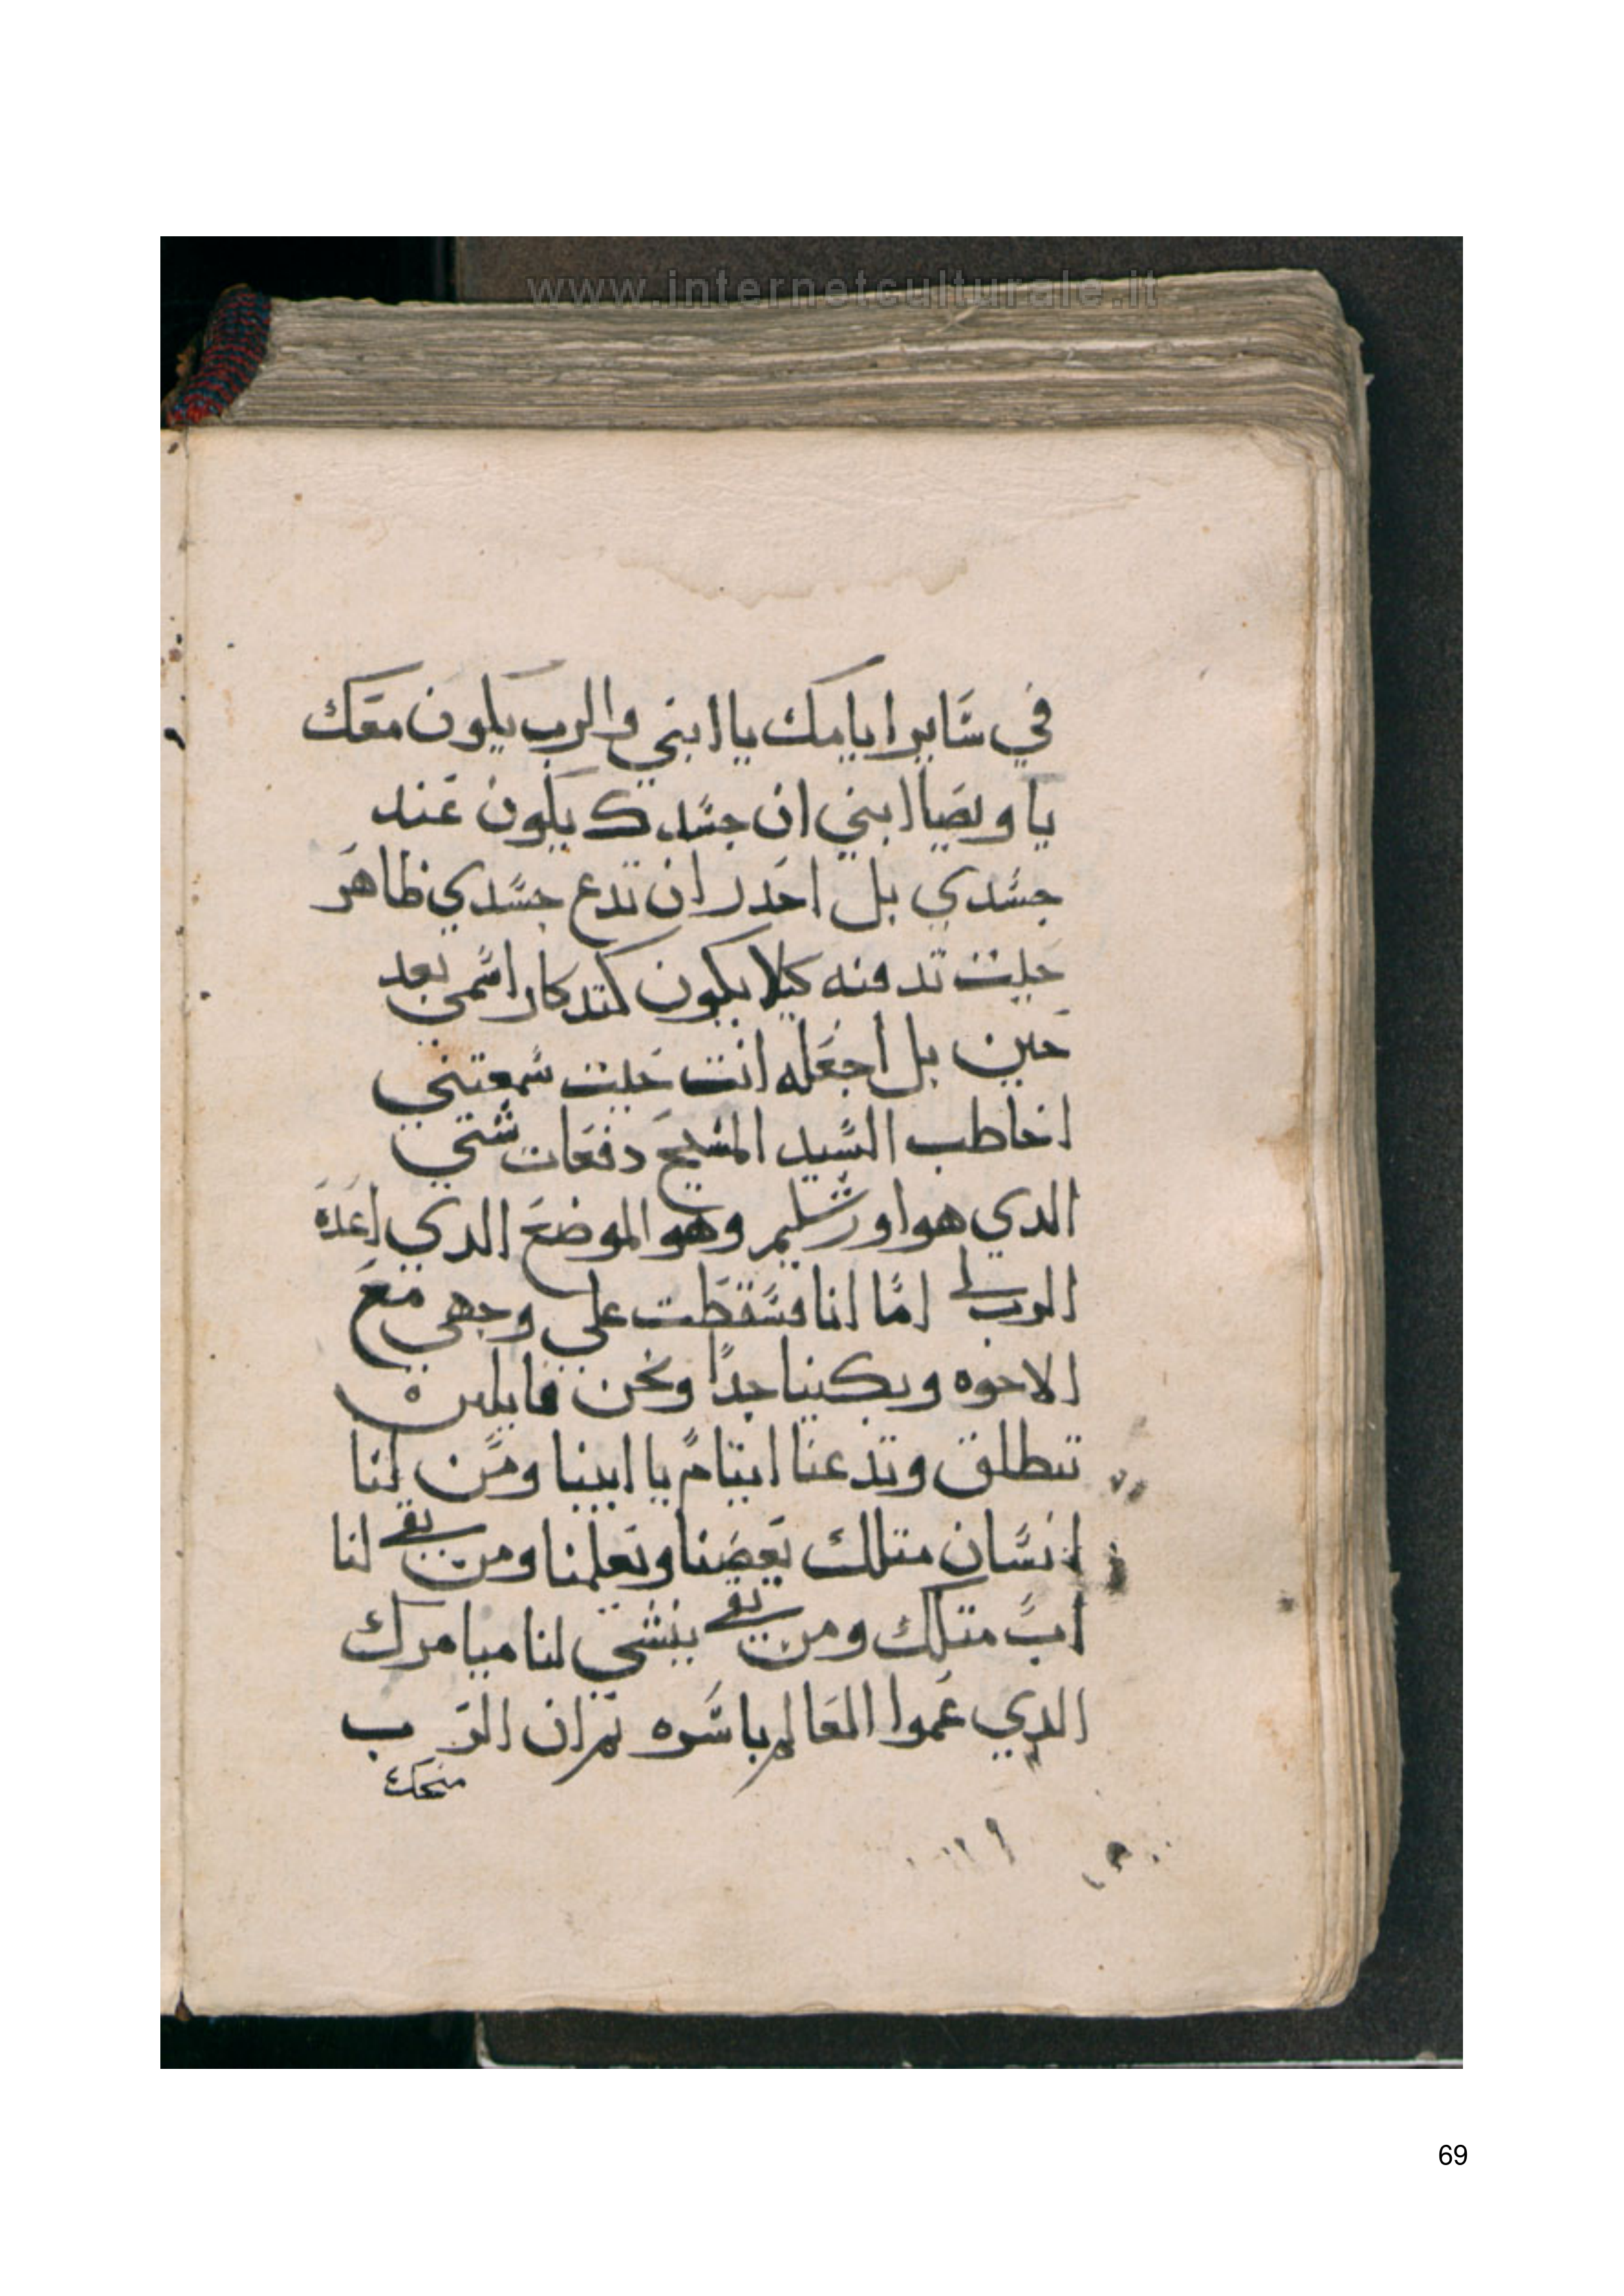 www.internetculturale.it
في ساير ايامك يا ابني والرب يكون معك
يا ويصا ابني ان جسدك يكون عند
جسدي بل احدر ان تدع جسدي ظاهر
حيت تدفنه كيلا يكون كتدكار اسمي بعد
حين بل اجعله انت حيت سمعتني
اخاطب السيد المسيح دفعات شتي
الدي هو اورشليم وهو الموضع الدي اعده
الرب لي اما انا فسقطت علي وجهي مع
الاخوه وبكينا جدا ونحن قايلين
تنطلق وتدعنا ايتام يا ابينا ومن لنا
انسان متلك يعضنا ويعلمنا ومن بقي لنا
اب متلك ومن بقي ينشي لنا ميامرك
الدي عموا العالم باسره تم ان الرب
منحك
69